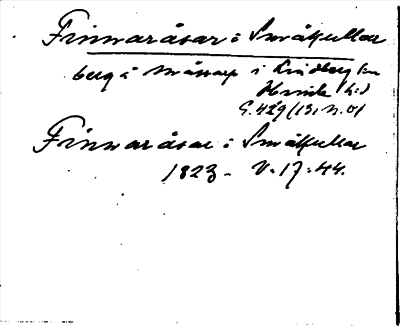 Finnaråsar i Småkullar
berg å Måssarp i Lindberg sn
Himle hd
G. 429 (13, n. 01
Finnaråsar i Småkullar
1823 - V. 17: 44.